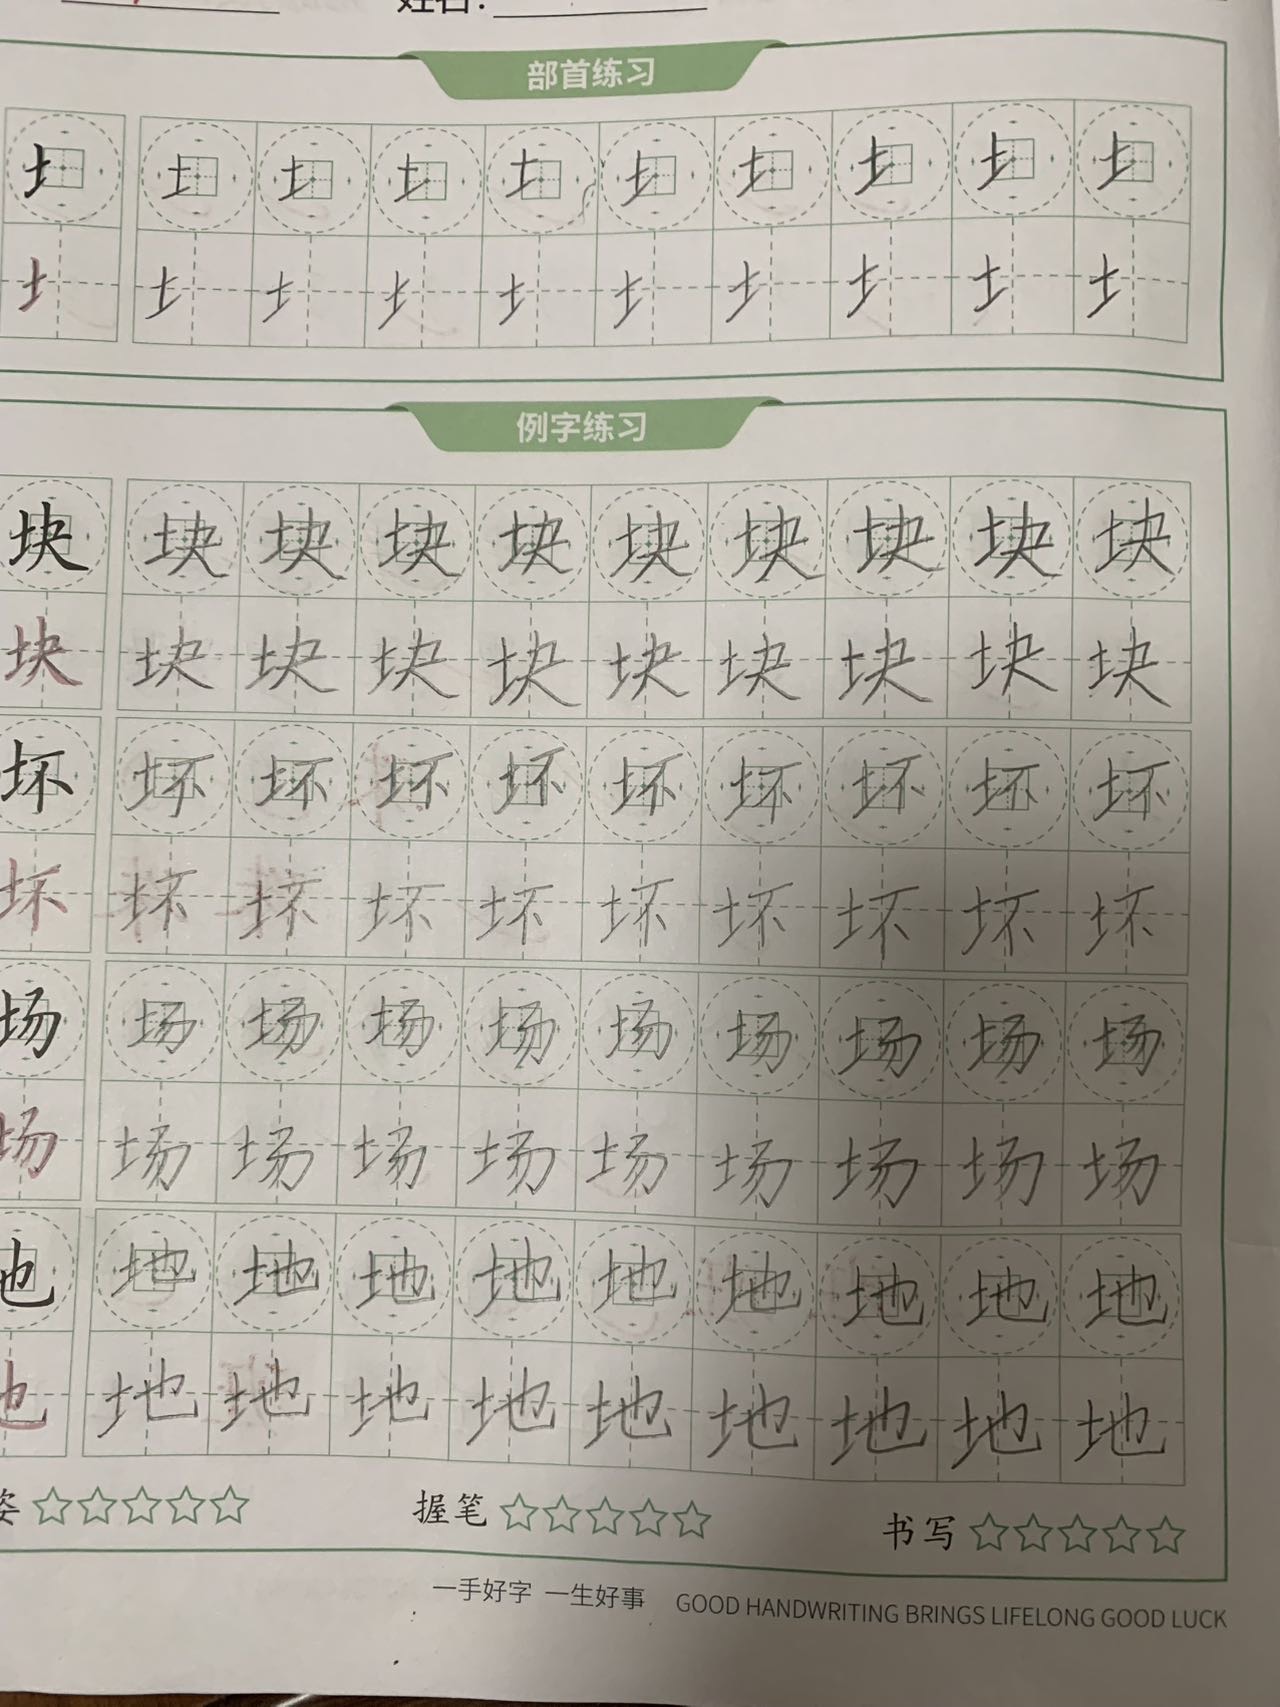 姓名:
部首练习
土 土 土 土 土 土 土 土 土 土
土 土 土 土 土 土 土 土 土 土
例字练习
块 块 块 块 块 块 块 块 块 块
块 块 块 块 块 块 块 块 块 块
坏 坏 坏 坏 坏 坏 坏 坏 坏 坏
坏 坏 坏 坏 坏 坏 坏 坏 坏 坏
场 场 场 场 场 场 场 场 场 场
场 场 场 场 场 场 场 场 场 场
地 地 地 地 地 地 地 地 地 地
地 地 地 地 地 地 地 地 地 地
姿 握笔 书写
一手好字 一生好事 GOOD HANDWRITING BRINGS LIFELONG GOOD LUCK